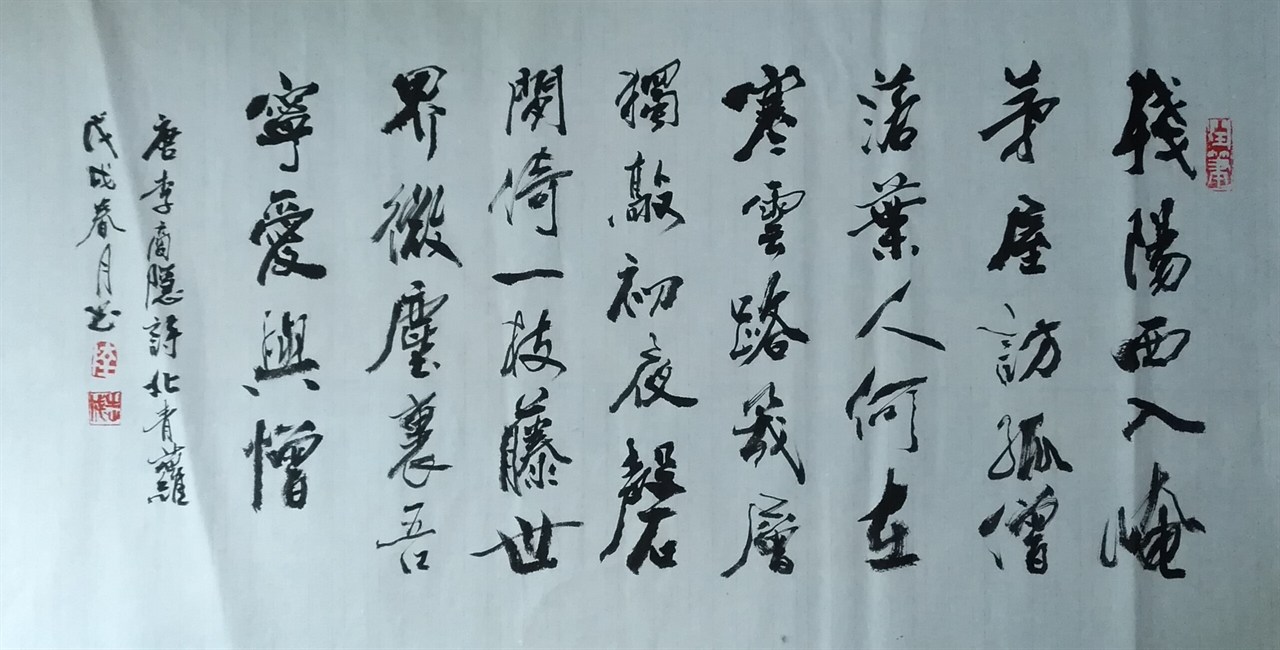 殘陽西入崦
茅屋訪孤僧
落葉人何在
寒雲路幾層
獨敲初夜磬
閑倚一枝藤世
界微塵裏吾
寧愛與憎
唐李商隱詩北青蘿
戊戌春月书